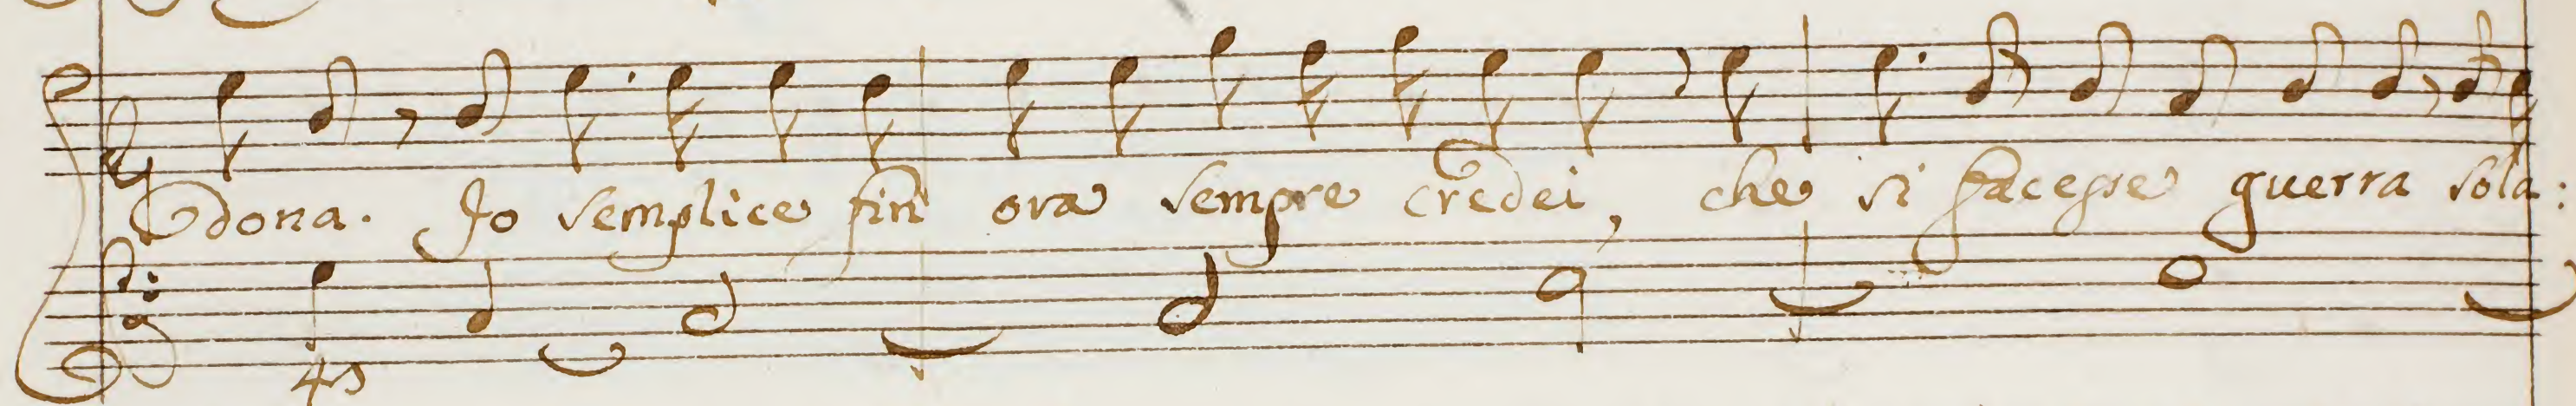 dona. Io semplice fin ora sempre credei, che si facesse guerra sola:
43